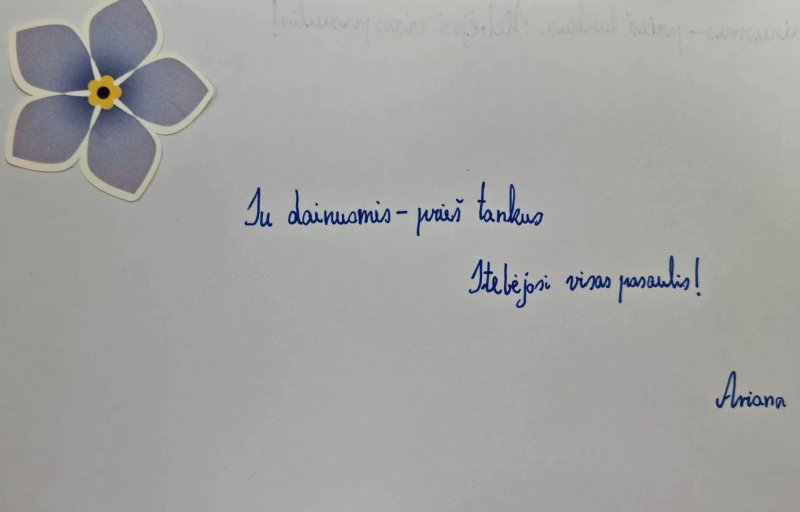 Su dainomis - prieš tankus
Stebėjosi visas pasaulis!
Ariana